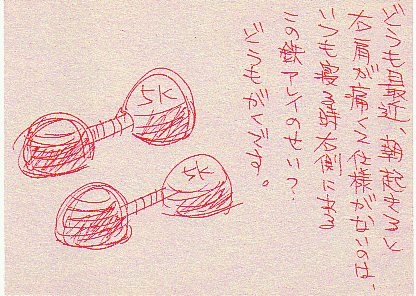 どうも最近、朝起きると
右肩が痛くて仕様がないのは、
いつも寝る時右側にある
この鉄アレイのせい?
どうもがくです。
5K
5K